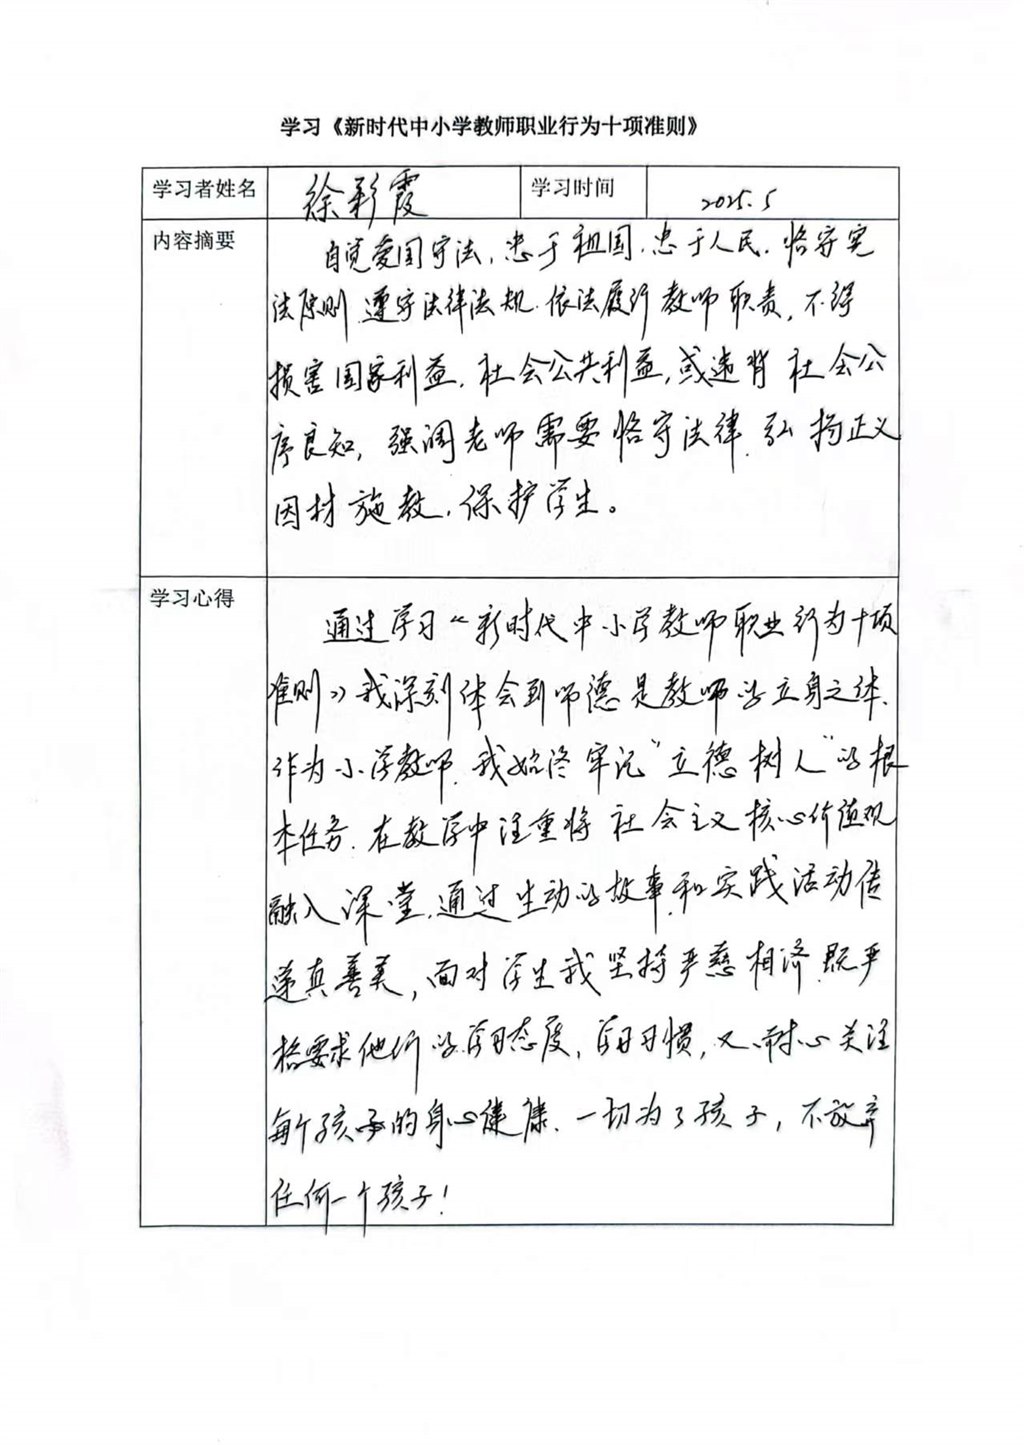 学习《新时代中小学教师职业行为十项准则》
学习者姓名 徐彩霞 学习时间 2025.5
内容摘要
自觉爱国守法,忠于祖国.忠于人民.恪守宪
法原则.遵守法律法规.依法履行教师职责,不得
损害国家利益.社会公共利益,或违背社会公
序良知,强调老师需要恪守法律.弘扬正义
因材施教.保护学生。
学习心得
通过学习《新时代中小学教师职业行为十项
准则》我深刻体会到师德是教师的立身之体.
作为小学教师.我始终牢记“立德树人”的根
本任务.在教学中注重将社会主义核心价值观
融入课堂.通过生动的故事和实践活动传
递真善美,面对学生我坚持严慈相济.既严
格要求他们的学习态度,学习习惯,又耐心关注
每个孩子的身心健康.一切为了孩子,不放弃
任何一个孩子!